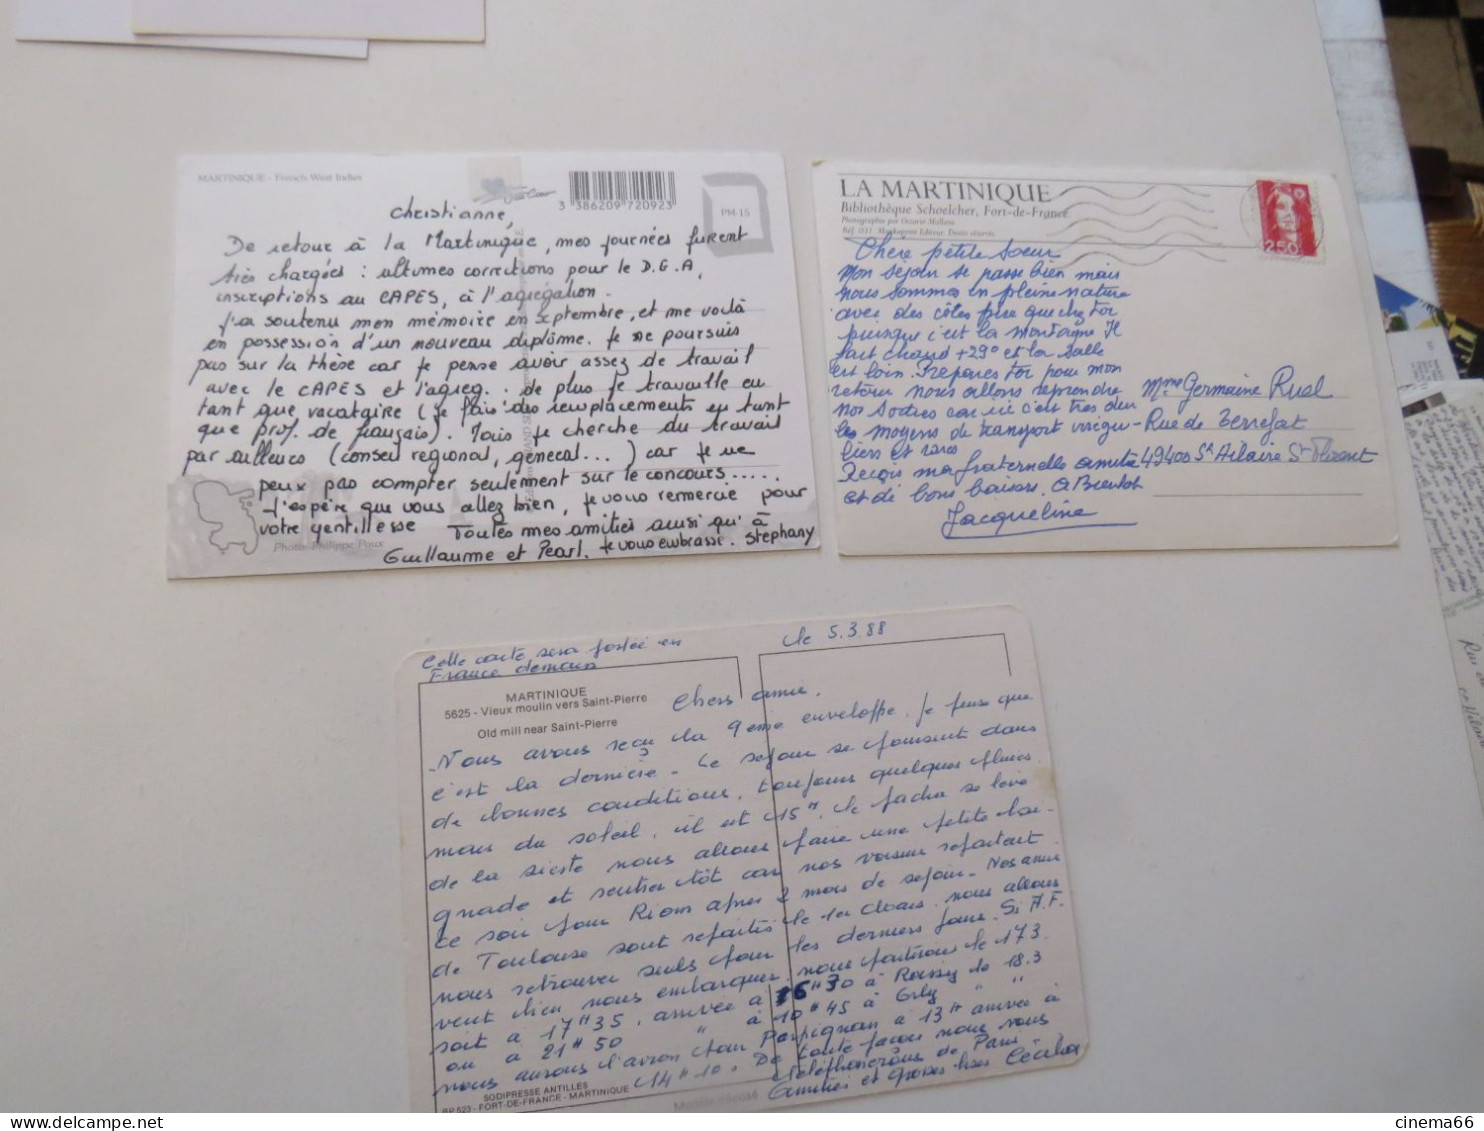 MARTINIQUE - French West Indies
3 386209 720923
PM-15
Christianne,
De retour à la Martinique, mes journées furent
très chargées : ultimes corrections pour le D.G.A,
inscriptions au CAPES, à l'agrégation.
J'ai soutenu mon mémoire en septembre, et me voilà
en possession d'un nouveau diplôme. Je ne poursuis
pas sur la thèse car je pense avoir assez de travail
avec le CAPES et l'agreg... de plus je travaille en
tant que vacataire (je fais des remplacements en tant
que prof. de français). Mais je cherche du travail
par ailleurs (conseil regional, général...) car je ne
peux pas compter seulement sur le concours.....
J'espère que vous allez bien, je vous remercie pour
votre gentillesse Toutes mes amitiés ainsi qu'à
Guillaume et Pearl. je vous embrasse. stephany
Photo: Philippe Poux
LA MARTINIQUE
Bibliothèque Schoelcher, Fort-de-France
2,50
Chère petite Soeur
Mon séjour se passe bien mais
nous sommes en pleine nature
avec des côtes pire que chez toi
puisque c'est la montagne Il
fait chaud +29° et la salle
est loin. Prépares toi pour mon
retour nous allons reprendre
nos sorties car ici c'est très dur
les moyens de transport irrégu-
liers et rares
Reçois ma fraternelle amitié
et de bons baisers. A Bientôt
Jacqueline
Mme Germaine Ruel
Rue de Terrefort
49400 St Hilaire St Florent
Cette carte sera postée en
France demain
le 5.3.88
MARTINIQUE
5625 - Vieux moulin vers Saint-Pierre
Old mill near Saint-Pierre
Chers amis.
Nous avons reçu la 9eme enveloppe. Je pense que
c'est la dernière - Le sejour se poursuit dans
de bonnes conditions, toujours quelques pluies
mais du soleil, il est 15H, le pacha se lève
de la sieste nous allons faire une petite bai-
gnade et rentrer tôt car nos voisins repartent
ce soir pour Riom apres 2 mois de sejour - Nos amis
de Toulouse sont repartis le 1er Mars. nous allons
nous retrouver seuls pour les derniers jours. Si A.F.
veut bien nous embarquer, nous partirons le 17 3.
soit à 17H35, arrivée à 6H30 à Roissy le 18.3
ou à 21H50 " à 10H45 à Orly " "
nous aurons l'avion pour Perpignan à 13H arrivée à
14H10. De toute façon nous vous
téléphonerons de Paris
Amitiés et grosses bises Cécile
SODIPRESSE ANTILLES
BP 523 - FORT-DE-FRANCE - MARTINIQUE
cinema66